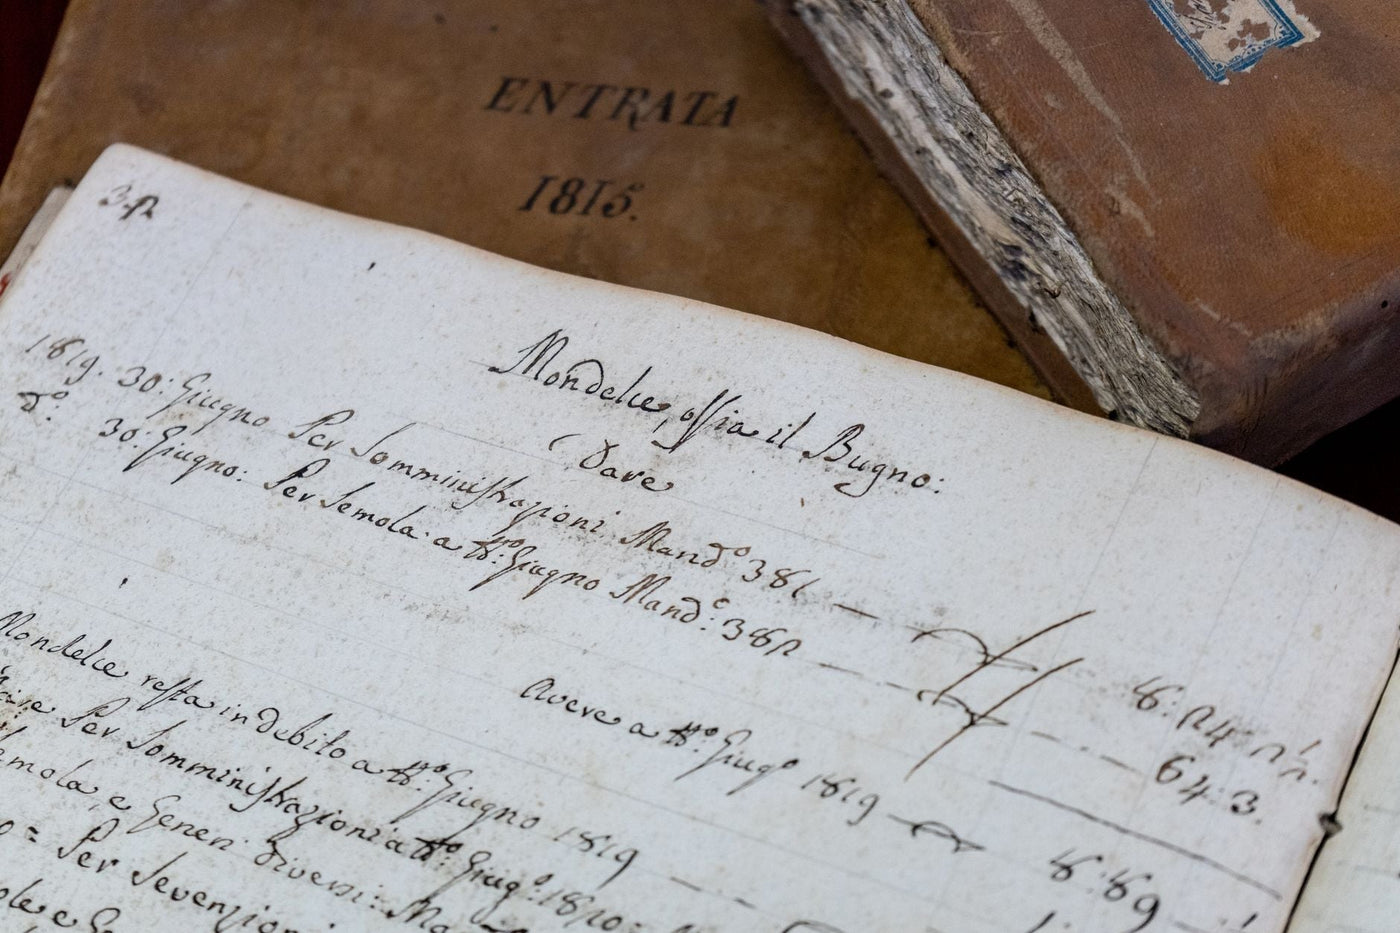 ENTRATA
1815.
32
Mondelce, ossia il Bugno:
Dare
1819. 30: Giugno Per Somministrazioni Mand:o 381
d:o 30: Giugno: Per Semola a tt:o Giugno Mand:o 382
8: 24 2
64: 3.
Avere a tt:o Giug:o 1819
8:89
Mondelce resta in debito a tt:o Giugno 1819
Per Somministrazioni a tt:o Giug:o 1820:
e Generi diversi:
= Per Sevenzioni
e